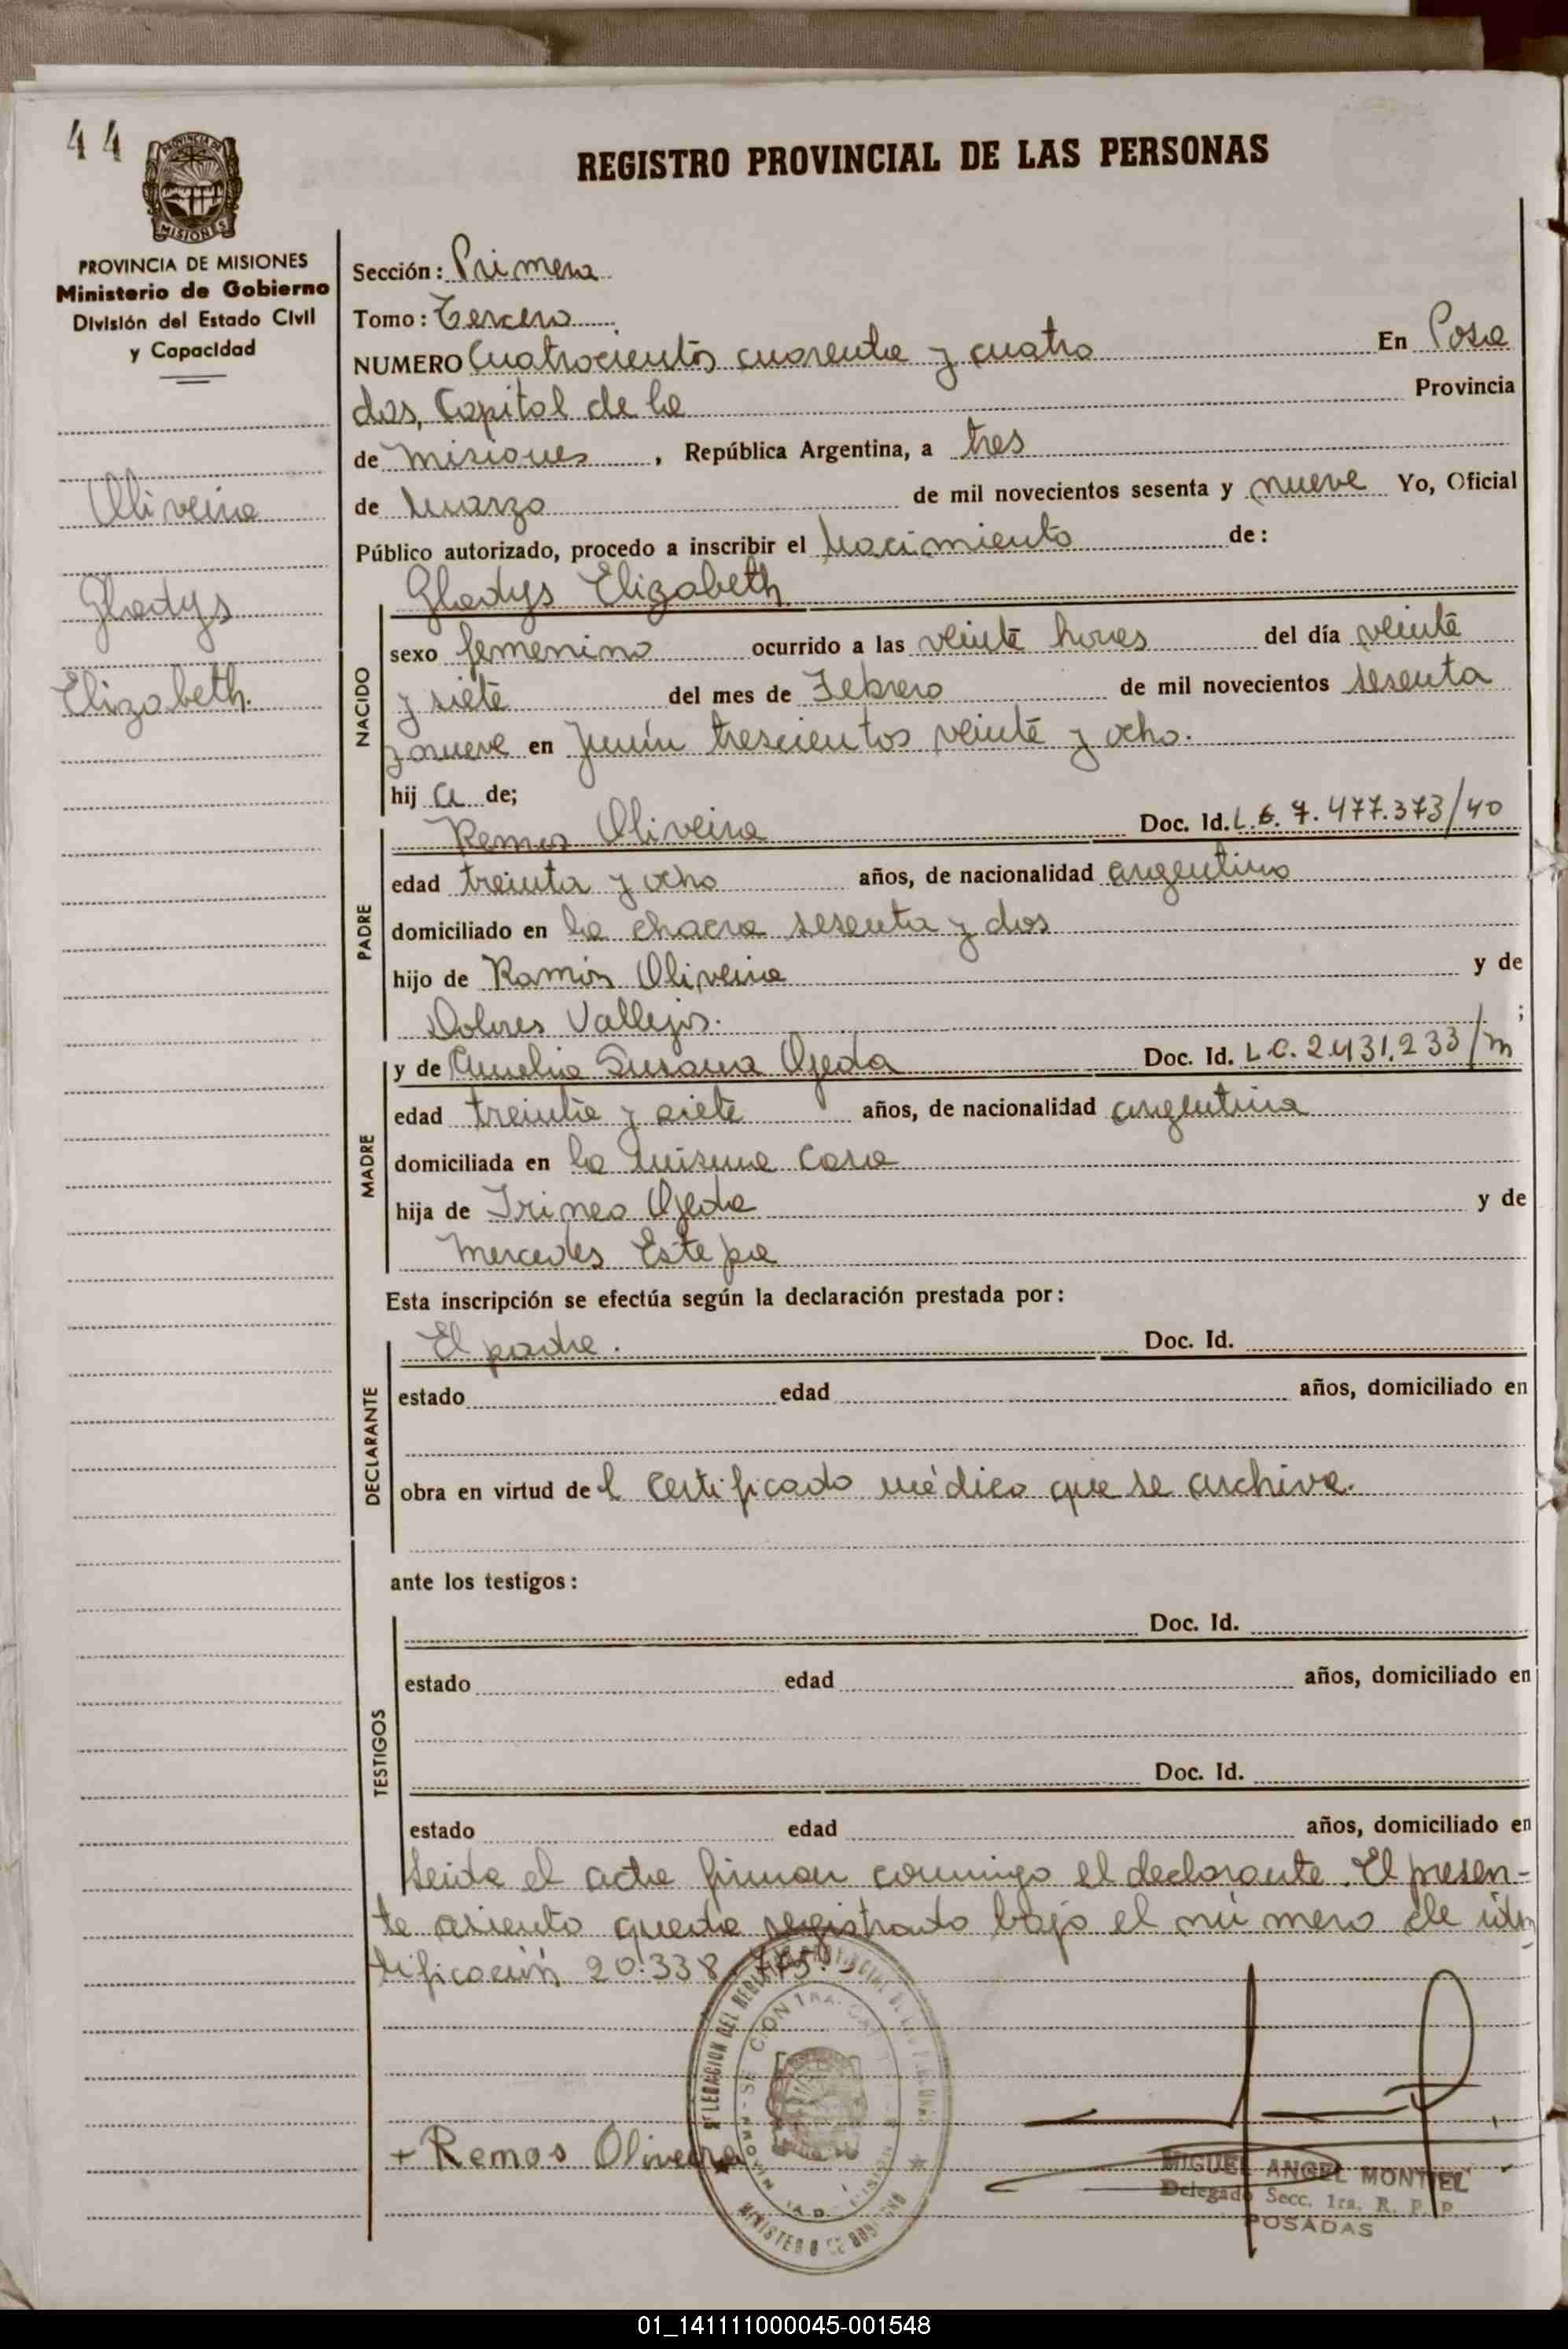 44
PROVINCIA DE
MISIONES
PROVINCIA DE MISIONES
Ministerio de Gobierno
División del Estado Civil
y Capacidad
Oliveira
Gladys
Elizabeth.
REGISTRO PROVINCIAL DE LAS PERSONAS
Sección: Primera
Tomo: Tercero
NUMERO Cuatrocientos cuarenta y cuatro En Posa
das, Capital de la Provincia
de Misiones, República Argentina, a tres
de Marzo de mil novecientos sesenta y nueve Yo, Oficial
Público autorizado, procedo a inscribir el Nacimiento de:
Gladys Elizabeth
NACIDO
sexo femenino ocurrido a las veinte horas del día veinte
y siete del mes de Febrero de mil novecientos sesenta
y nueve en Junín trescientos veinte y ocho.
hij a de;
PADRE
Remos Oliveira Doc. Id. L.E. 7.477.373/40
edad treinta y ocho años, de nacionalidad argentino
domiciliado en la chacra sesenta y dos
hijo de Ramón Oliveira y de
Dolores Vallejos. ;
MADRE
y de Amelia Susana Ojeda Doc. Id. L.C. 2.431.233/m
edad treinta y siete años, de nacionalidad argentina
domiciliada en la misma casa
hija de Irineo Ojeda y de
Mercedes Estepa
Esta inscripción se efectúa según la declaración prestada por:
DECLARANTE
El padre. Doc. Id.
estado edad años, domiciliado en
obra en virtud de l certificado médico que se archiva.
ante los testigos:
TESTIGOS
Doc. Id.
estado edad años, domiciliado en
Doc. Id.
estado edad años, domiciliado en
Leida el acta firman conmigo el declarante. El presen-
te asiento queda registrado bajo el número de iden
tificación 20.338.775.
+ Remos Oliveira
MIGUEL ANGEL MONTIEL
Delegado Secc. 1ra. R. P. P.
POSADAS
01_141111000045-001548